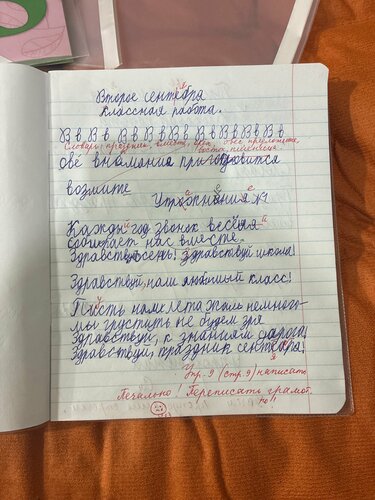 Второе сентебря
Классная работа.
В в В в В в В в В в В в В в В в
Словарь: праздник, вместе, овёс, предложите,
пшеница
овё внимания приготовится
возмите
Упропнения №1
Каждый год звонок весёлая
собирает нас вместе.
Здравствуй осень! Здравствуй школа!
Здравствуй, наш любимый класс!
Пусть нам лета жаль немного-
мы грустить не будем зря
Здравствуй, к знаниям дорога!
Здравствуй, праздник сентебря!
Упр. 9 (стр. 9) написать
Печально! Переписать грамот-
но!!